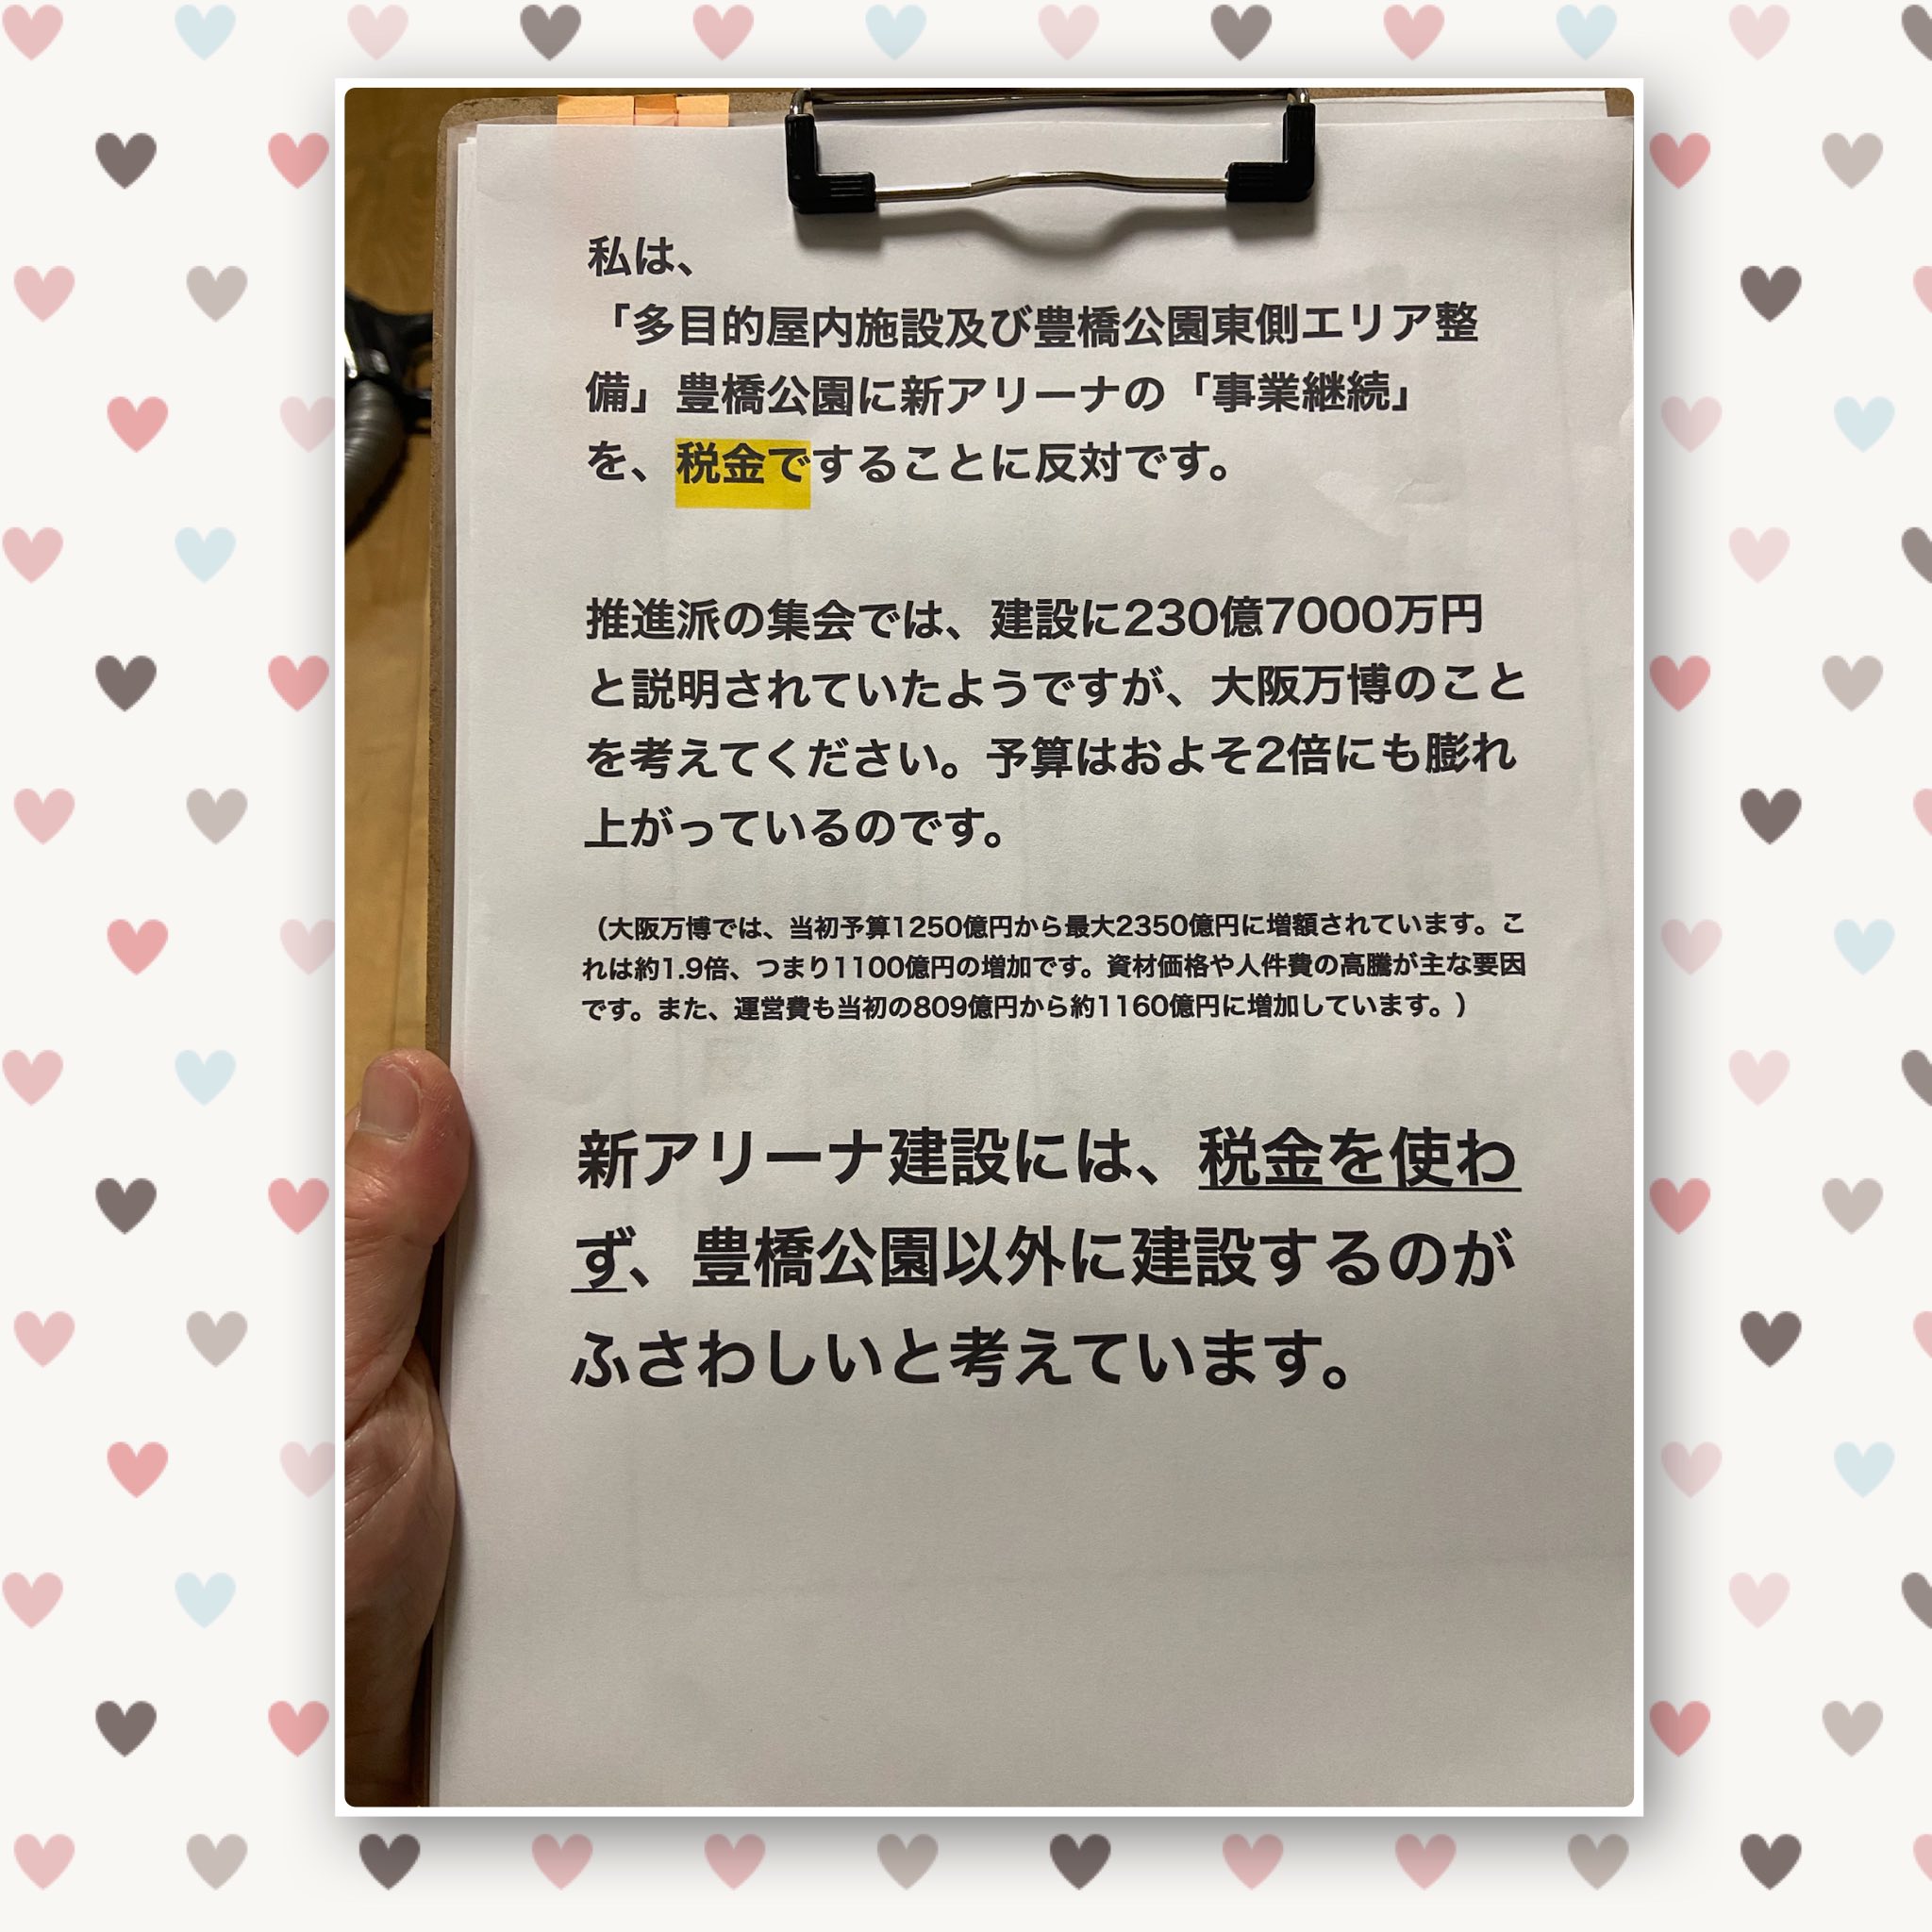 私は、
「多目的屋内施設及び豊橋公園東側エリア整
備」豊橋公園に新アリーナの「事業継続」
を、税金ですることに反対です。
推進派の集会では、建設に230億7000万円
と説明されていたようですが、大阪万博のこと
を考えてください。予算はおよそ2倍にも膨れ
上がっているのです。
（大阪万博では、当初予算1250億円から最大2350億円に増額されています。こ
れは約1.9倍、つまり1100億円の増加です。資材価格や人件費の高騰が主な要因
です。また、運営費も当初の809億円から約1160億円に増加しています。）
新アリーナ建設には、税金を使わ
ず、豊橋公園以外に建設するのが
ふさわしいと考えています。